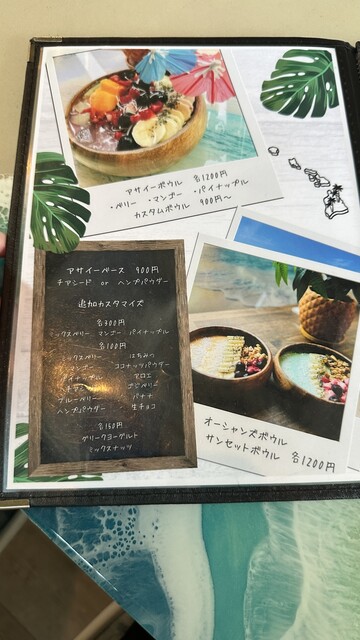 アサイーボウル 各1200円
・ベリー ・マンゴー ・パイナップル
カスタムボウル 900円～
アサイーベース 900円
チアシード or ヘンプパウダー
追加カスタマイズ
各300円
ミックスベリー マンゴー パイナップル
各100円
ミックスベリー はちみつ
マンゴー ココナッツパウダー
パイナップル アロエ
ゴジベリー
ブルーベリー バナナ
ヘンプパウダー 生チョコ
各150円
グリークヨーグルト
ミックスナッツ
オーシャンズボウル
サンセットボウル 各1200円